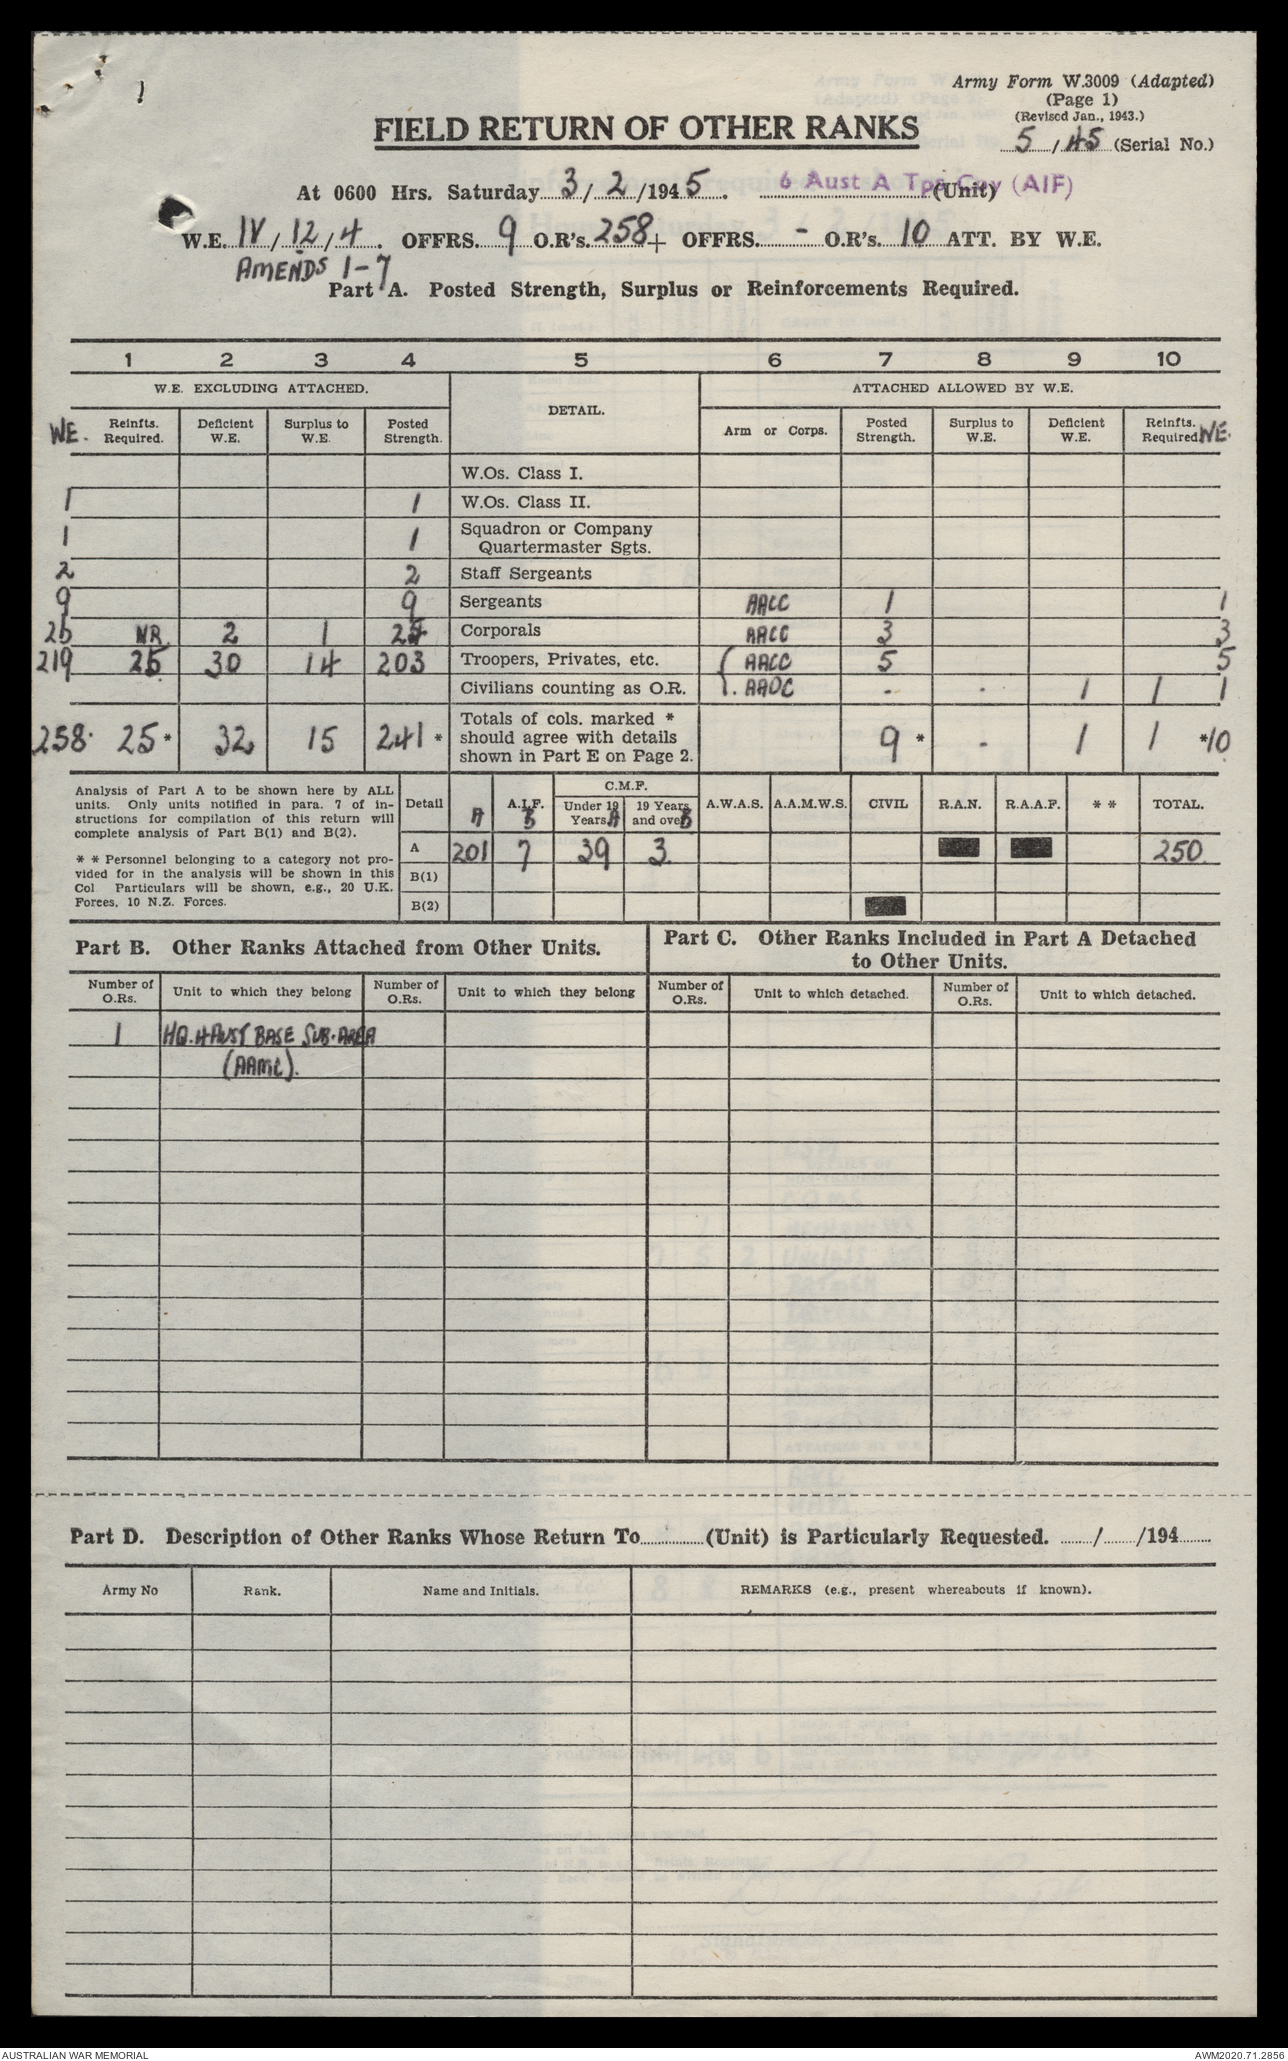 Army Form W.3009 (Adapted)
(Page 1)
(Revised Jan., 1943.)
FIELD RETURN OF OTHER RANKS
5/45 (Serial No.)
At 0600 Hrs. Saturday 3/2/1945. 6 Aust A Tps Coy (AIF) (Unit)
W.E. IV/12/4. OFFRS. 9 O.R's. 258 + OFFRS. - O.R's. 10 ATT. BY W.E.
AMENDS 1-7
Part A. Posted Strength, Surplus or Reinforcements Required.
1 2 3 4 5 6 7 8 9 10
W.E. EXCLUDING ATTACHED. DETAIL. ATTACHED ALLOWED BY W.E.
WE. Reinfts. Required. Deficient W.E. Surplus to W.E. Posted Strength. Arm or Corps. Posted Strength. Surplus to W.E. Deficient W.E. Reinfts. Required. WE.
W.Os. Class I.
1 1 W.Os. Class II.
1 1 Squadron or Company Quartermaster Sgts.
2 2 Staff Sergeants
9 9 Sergeants AACC 1 1
26 NR 2 1 25 Corporals AACC 3 3
219 25 30 14 203 Troopers, Privates, etc. AACC 5 5
Civilians counting as O.R. AADC - - 1 1 1
258 25* 32 15 241* Totals of cols. marked * should agree with details shown in Part E on Page 2. 9* - 1 1 *10
Analysis of Part A to be shown here by ALL
units. Only units notified in para. 7 of in-
structions for compilation of this return will
complete analysis of Part B(1) and B(2).
* * Personnel belonging to a category not pro-
vided for in the analysis will be shown in this
Col Particulars will be shown, e.g., 20 U.K.
Forces, 10 N.Z. Forces.
C.M.F.
Detail A A.I.F. B Under 19 Years A 19 Years and over B A.W.A.S. A.A.M.W.S. CIVIL R.A.N. R.A.A.F. * * TOTAL.
A 201 7 39 3 250
B(1)
B(2)
Part B. Other Ranks Attached from Other Units.
Part C. Other Ranks Included in Part A Detached
to Other Units.
Number of O.Rs. Unit to which they belong Number of O.Rs. Unit to which they belong Number of O.Rs. Unit to which detached. Number of O.Rs. Unit to which detached.
1 HQ. 4 AUST BASE SUB-AREA
(AAMC).
Part D. Description of Other Ranks Whose Return To (Unit) is Particularly Requested. / /194
Army No Rank. Name and Initials. REMARKS (e.g., present whereabouts if known).
AUSTRALIAN WAR MEMORIAL AWM2020.71.2856